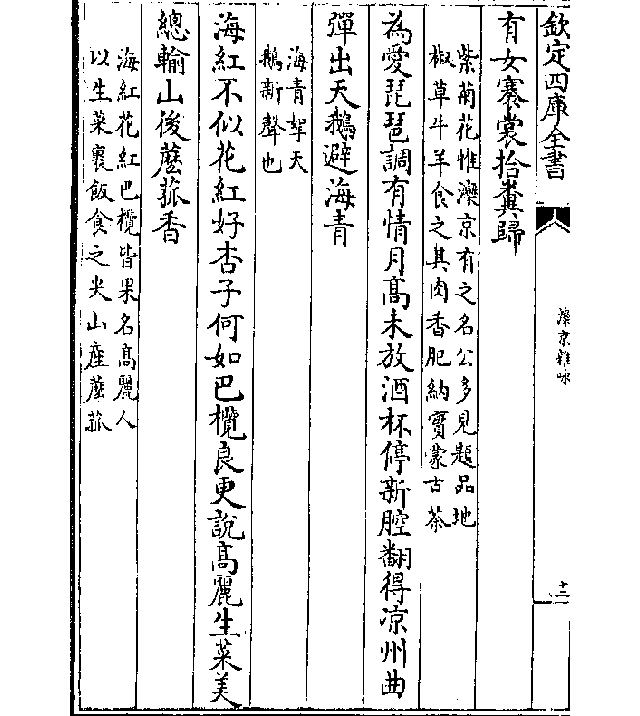 欽定四庫全書
灤京雜咏
十二
有女褰裳拾糞歸
紫菊花惟灤京有之名公多見題品地
椒草牛羊食之其肉香肥納寶蒙古茶
為愛琵琶調有情月髙未放酒杯停新腔翻得凉州曲
彈出天鵝避海青
海青挐天
鵝新聲也
海紅不似花紅好杏子何如巴欖良更説髙麗生菜美
總輸山後䕷菰香
海紅花紅巴欖皆果名髙麗人
以生菜裹飯食之尖山産䕷菰